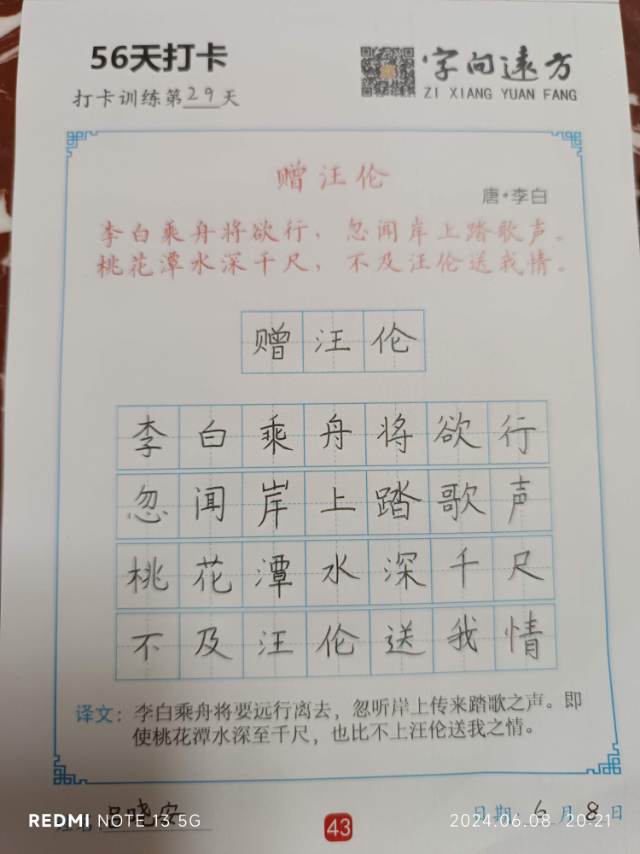 56天打卡
打卡训练第29天
字向远方
ZI XIANG YUAN FANG
赠汪伦
唐·李白
李白乘舟将欲行，忽闻岸上踏歌声。
桃花潭水深千尺，不及汪伦送我情。
赠汪伦
李白乘舟将欲行
忽闻岸上踏歌声
桃花潭水深千尺
不及汪伦送我情
译文：李白乘舟将要远行离去，忽听岸上传来踏歌之声。即
使桃花潭水深至千尺，也比不上汪伦送我之情。
吕晓安
日期：6月8日
REDMI NOTE 13 5G
43
2024.06.08 20:21